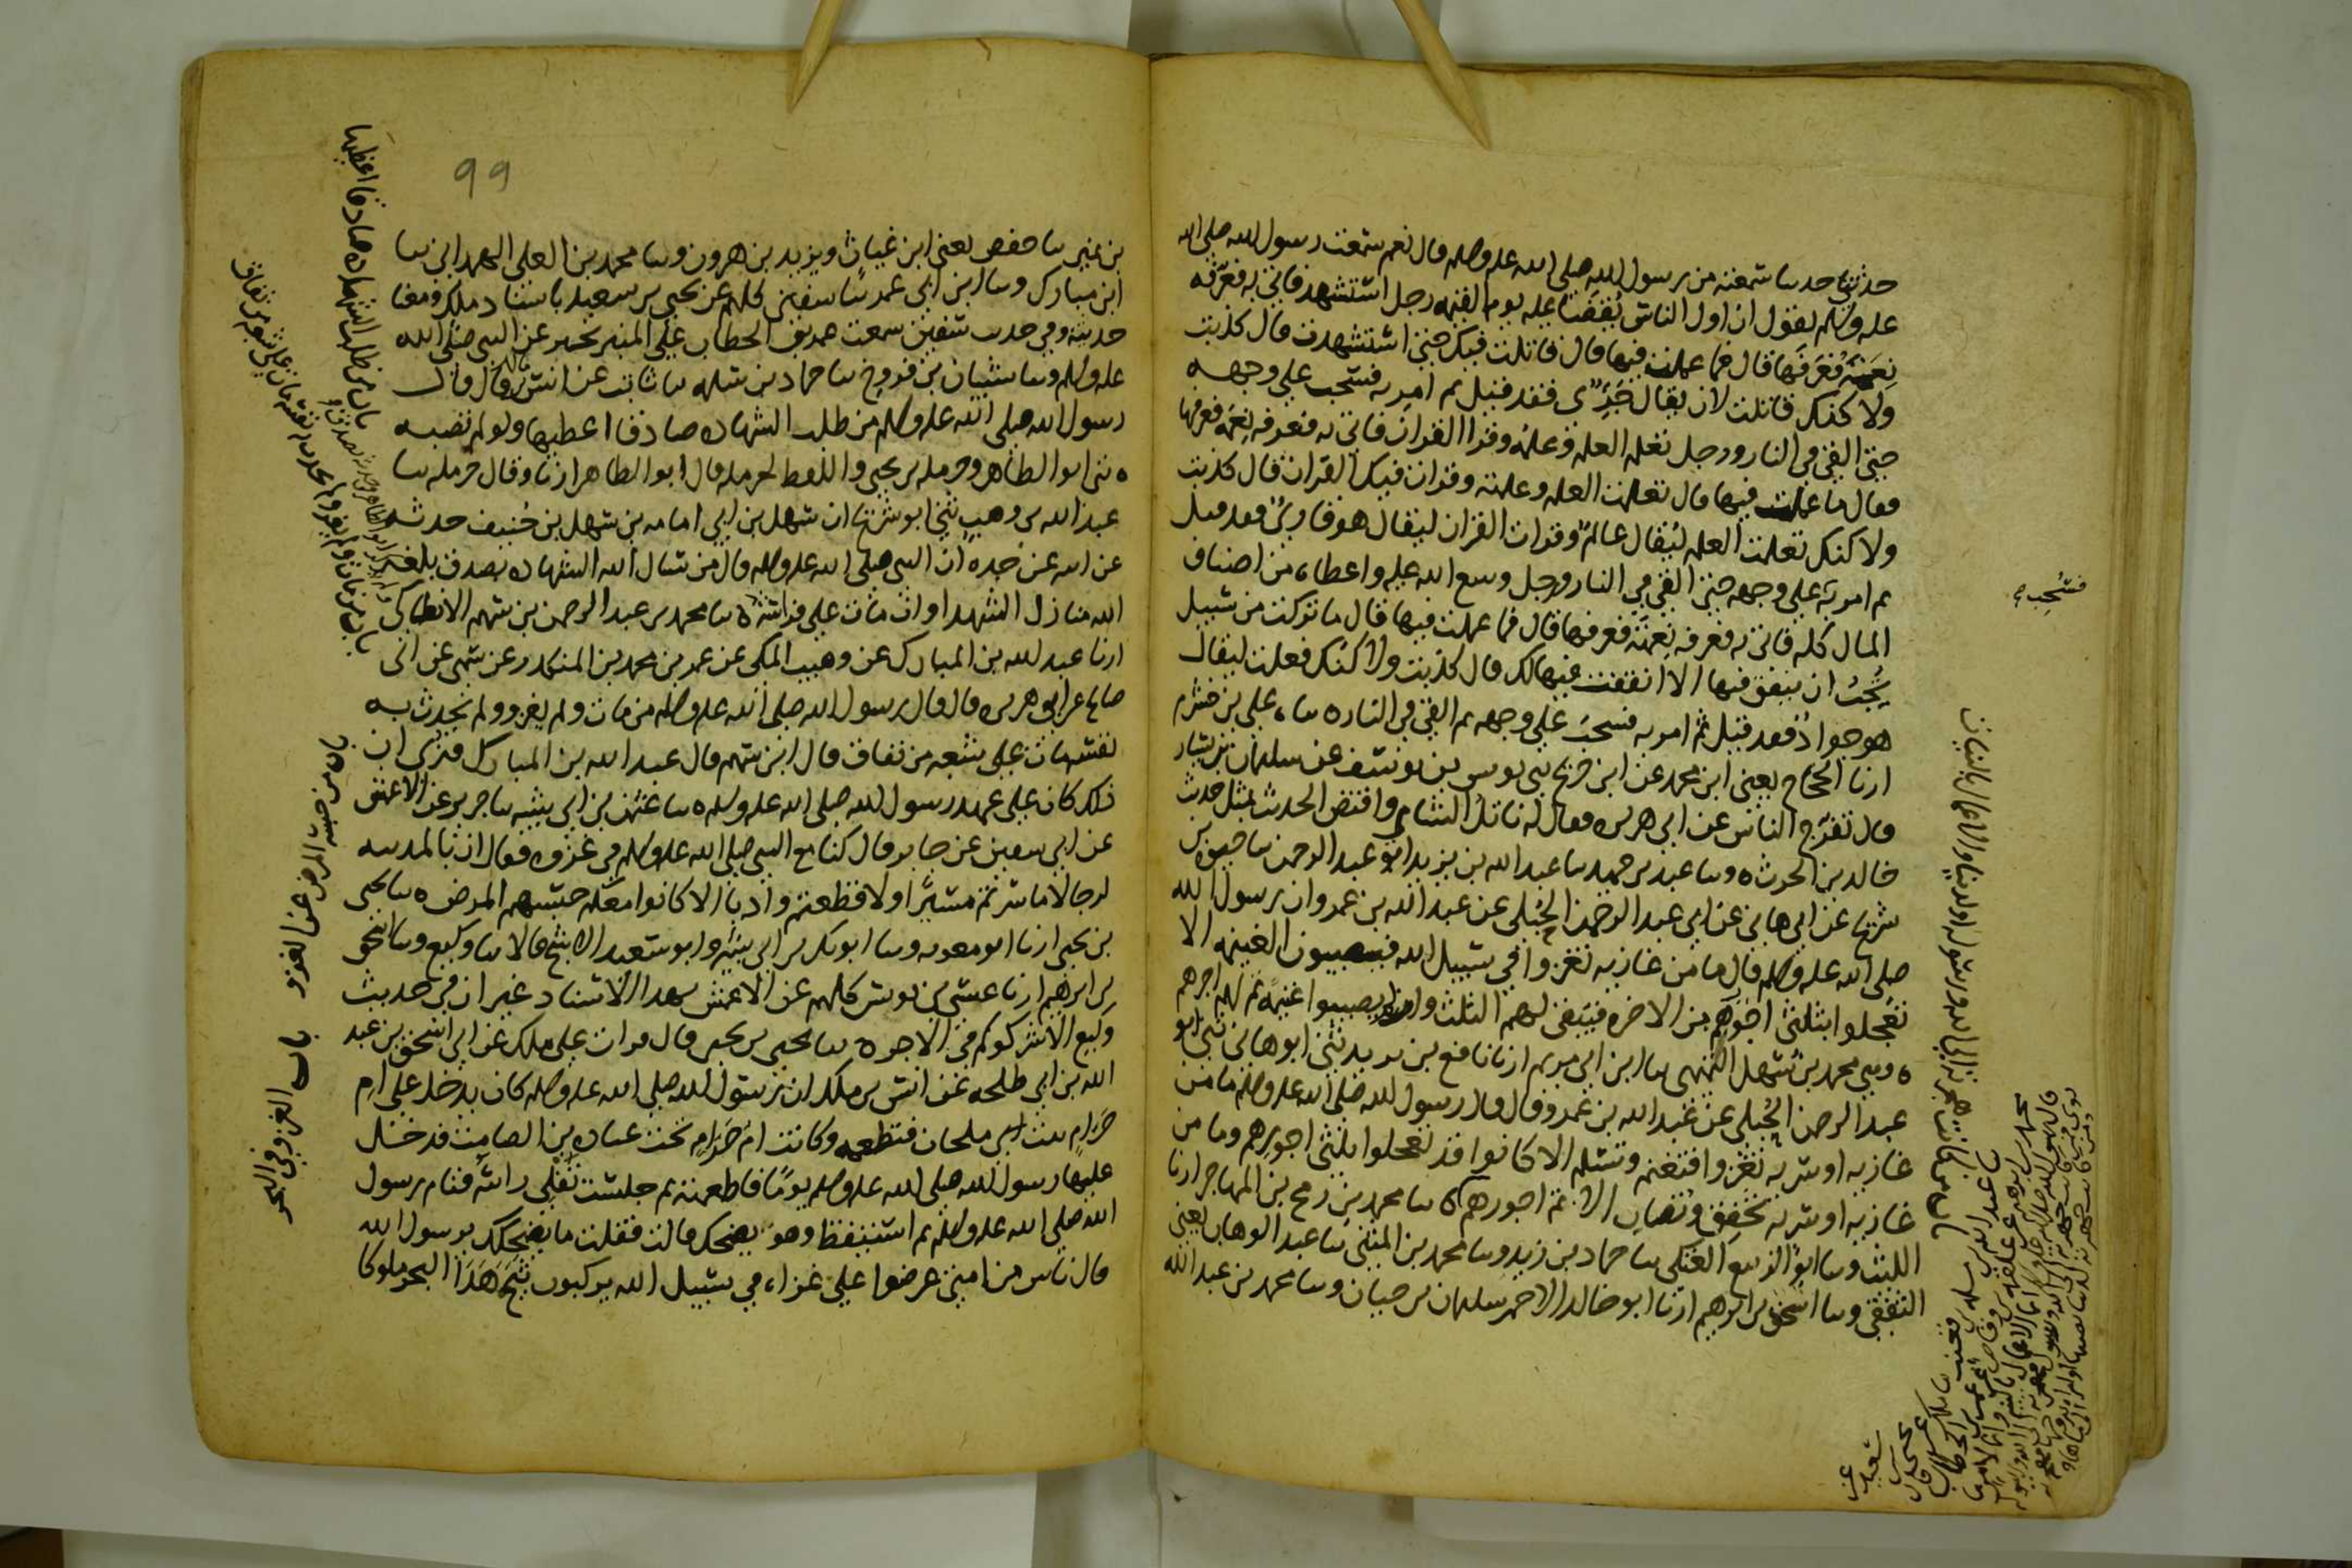 حدثني حدىثا سمعته من رسول الله صلى الله عليه وسلم قال نعم سمعت رسول الله صلى الله
عليه وسلم يقول ان اول الناس يقضى عليه يوم القيمه رجل استشهد فاتي به فعرفه
نعمته فعرفها قال فما عملت فيها قال قاتلت فيك حتى استشهدت قال كذبت
ولاكنك قاتلت لان يقال جرى فقد قيل ثم امر به فسحب على وجهه
حتى القي في النار ورجل تعلم العلم وعلمه وقرا القران فاتي به فعرفه نعمه فعرفها
فقال ما عملت فيها قال تعلمت العلم وعلمته وقرات فيك القران قال كذبت
ولاكنك تعلمت العلم ليقال عالم وقرات القران ليقال هو قارئ فقد قيل
ثم امر به على وجهه حتى القي في النار ورجل وسع الله عليه واعطاه من اصناف
المال كله فاتي به فعرفه نعمته فعرفها قال فما عملت فيها قال ما تركت من سبيل
تحب ان ينفق فيها الا انفقت فيها لك قال كذبت ولاكنك فعلت ليقال
هو جواد فقد قيل ثم امر به فسحب على وجهه ثم القي في النار ه سا علي بن خشرم
ارنا الحجاج يعني ابن محمد عن ابن جريج ىني يونس بن يوسف عن سليمان بن يسار
قال تفرج الناس عن ابي هريره فقال له ناتل الشامي واقتص الحديث بمثل حديث
خالد بن الحرث ه وسا عبد بن حميد سا عبد الله بن يزيد ابو عبد الرحمن سا حيوه بن
شريح عن ابي هاني عن ابي عبد الرحمن الحبلي عن عبد الله بن عمرو ان رسول الله
صلى الله عليه وسلم قال ما من غازيه تغزوا في سبيل الله فيصيبون الغنيمه الا
تعجلوا بثلثي اجورهم من الاخره فيبقى لهم الثلث وان لم يصيبوا غنيمه تم لهم اجرهم
ه وىني محمد بن سهل التميمي سا ابن ابي مريم ارنا نافع بن يزيد ثني ابو هاني ثني ابو
عبد الرحمن الحبلي عن عبد الله بن عمرو قال قال رسول الله صلى الله عليه وسلم ما من
غازيه او سريه تغزوا فتغنم وتسلم الا كانوا قد تعجلوا بثلثي اجورهم وما من
غازيه او سريه تخفق وتصاب الا تم اجورهم ه سا محمد بن رمح بن المهاجر ارنا
الليث وسا ابو الربيع العتكي سا حماد بن زيد وسا محمد بن المثنى سا عبد الوهاب يعني
الثقفي وسا اسحق بن ابرهيم ارنا ابو خالد الاحمر سليمان بن حيان وسا محمد بن عبد الله
فسُحِب
99
بن نمير سا حفص يعني ابن غياث ويزيد بن هرون وسا محمد بن العلى الهمداني سا
ابن مبارك وسا ابن ابي عمر سا سفين كلهم عن يحيى بن سعيد باسناد ملك ومعنا
حديثه وفي حديث سفين سمعت عمر بن الخطاب على المنبر يخبر عن النبي صلى الله
عليه وسلم وسا شيبان بن فروخ سا حماد بن سلمه سا ثابت عن انس قال قال
رسول الله صلى الله عليه وسلم من طلب الشهاده صادقا اعطيها ولو لم تصبه
ه ثني ابو الطاهر وحرمله بن يحيى واللفظ لحرمله قال ابو الطاهر ارنا وقال حرمله سا
عبد الله بن وهب ثني ابو شريح ان سهل بن ابي امامه بن سهل بن حُنيف حدثه
عن ابيه عن جده ان النبي صلى الله عليه وسلم قال من سال الله الشهاده بصدق بلغه
الله منازل الشهدا وان مات على فراشه ه سا محمد بن عبد الرحمن بن سهم الانطاكي
ارنا عبد الله بن المبارك عن وهيب المكي عن عمر بن محمد بن المنكدر عن سمي عن ابي
صالح عن ابي هريره قال قال رسول الله صلى الله عليه وسلم من مات ولم يغزو ولم يحدث به
نفسه مات على شعبه من نفاق قال ابن سهم قال عبد الله بن المبارك فنرى ان
ذلك كان على عهد رسول الله صلى الله عليه وسلم ه سا عثمن بن ابي شيبه سا جرير عن الاعمش
عن ابي سفين عن جابر قال كنا مع النبي صلى الله عليه وسلم في غزوه فقال ان بالمدينه
لرجالا ما سرتم مسيرا ولا قطعتم واديا الا كانوا معكم حبسهم المرض ه سا يحيى
بن يحيى ارنا ابو معويه وسا ابو بكر بن ابي شيبه وابو سعيد الاشج قالا سا وكيع وسا اسحق
بن ابرهيم ارنا عيسى بن يونس كلهم عن الاعمش بهذا الاسناد غير ان في حديث
وكيع الا شركوكم في الاجر ه سا يحيى بن يحيى قال قرات على ملك عن ابي اسحق بن عبد
الله بن ابي طلحه عن انس بن ملك ان رسول الله صلى الله عليه وسلم كان يدخل على ام
حرام بنت ملحان فتطعمه وكانت ام حرام تحت عباده بن الصامت فدخل
عليها رسول الله صلى الله عليه وسلم يوما فاطعمته ثم جلست تفلي راسه فنام رسول
الله صلى الله عليه وسلم ثم استيقظ وهو يضحك قالت فقلت ما يضحكك يرسول الله
قال ناس من امتي عرضوا علي غزاه في سبيل الله يركبون ثبج هذا البحر ملوكا
باب من طلب الشهاده صادقا اعطيها
باب من مات ولم يغزوا ولم يحدث نفسه مات على شعبه من نفاق
باب من حبسه المرض عن الغزو
باب الغزو في البحر